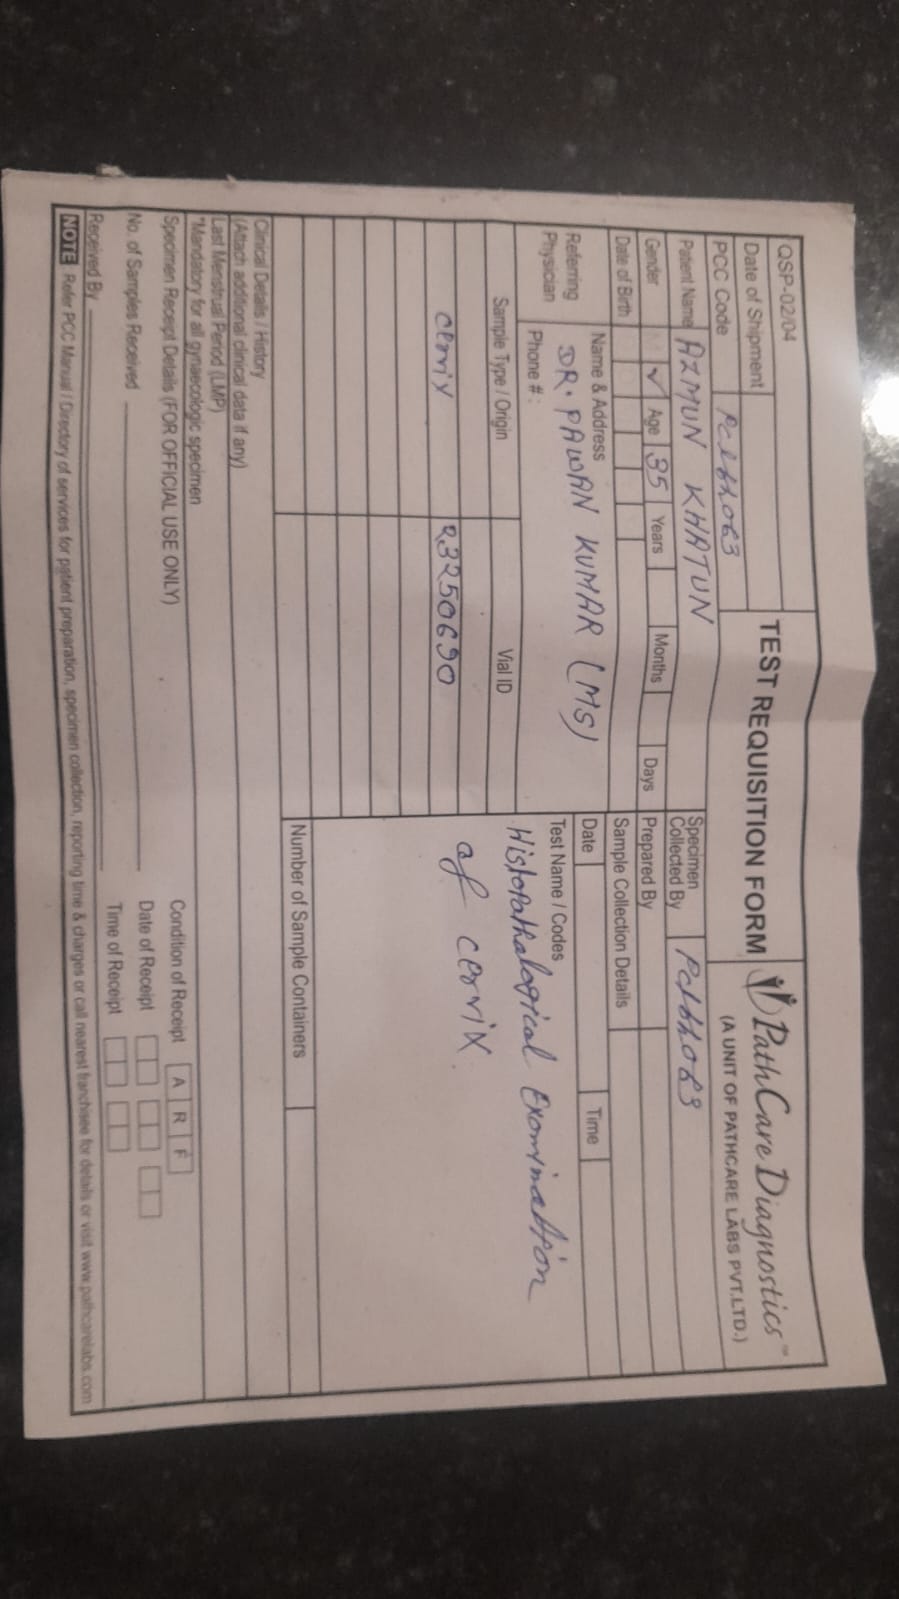 QSP-02/04
TEST REQUISITION FORM
PathCare Diagnostics™
(A UNIT OF PATHCARE LABS PVT.LTD.)
Date of Shipment
PCC Code
Patient Name AZMUN KHATUN
Specimen Collected By
Gender ✓ Age 35 Years Months Days
Prepared By
Date of Birth
Sample Collection Details
Referring Physician
Name & Address
DR. PAWAN KUMAR (MS)
Phone # :
Date Time
Test Name / Codes
Histopathalogical Examination
of cervix.
Sample Type / Origin Vial ID
cervix 23250690
Number of Sample Containers
Clinical Details / History
(Attach additional clinical data if any)
Last Menstrual Period (LMP)
*Mandatory for all gynaecologic specimen
Specimen Receipt Details (FOR OFFICIAL USE ONLY)
Condition of Receipt A R F
No. of Samples Received
Date of Receipt
Received By
Time of Receipt
NOTE Refer PCC Manual / Directory of services for patient preparation, specimen collection, reporting time & charges or call nearest franchisee for details or visit www.pathcarelabs.com